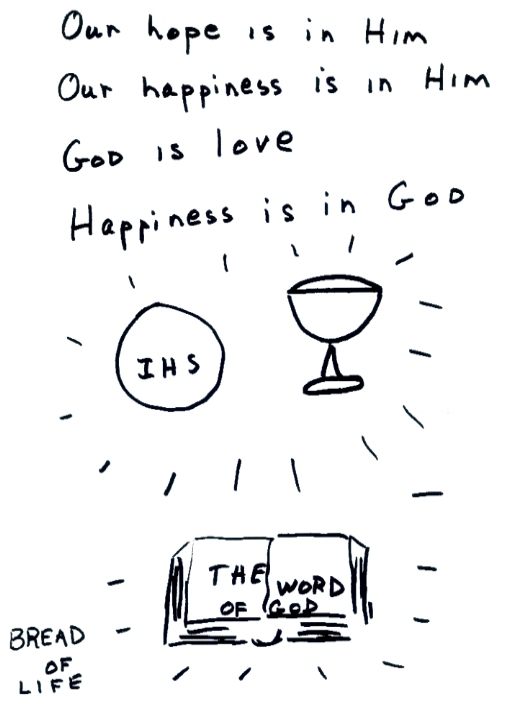 Our hope is in Him
Our happiness is in Him
GOD is love
Happiness is in GOD
IHS
THE WORD
OF GOD
BREAD
OF
LIFE